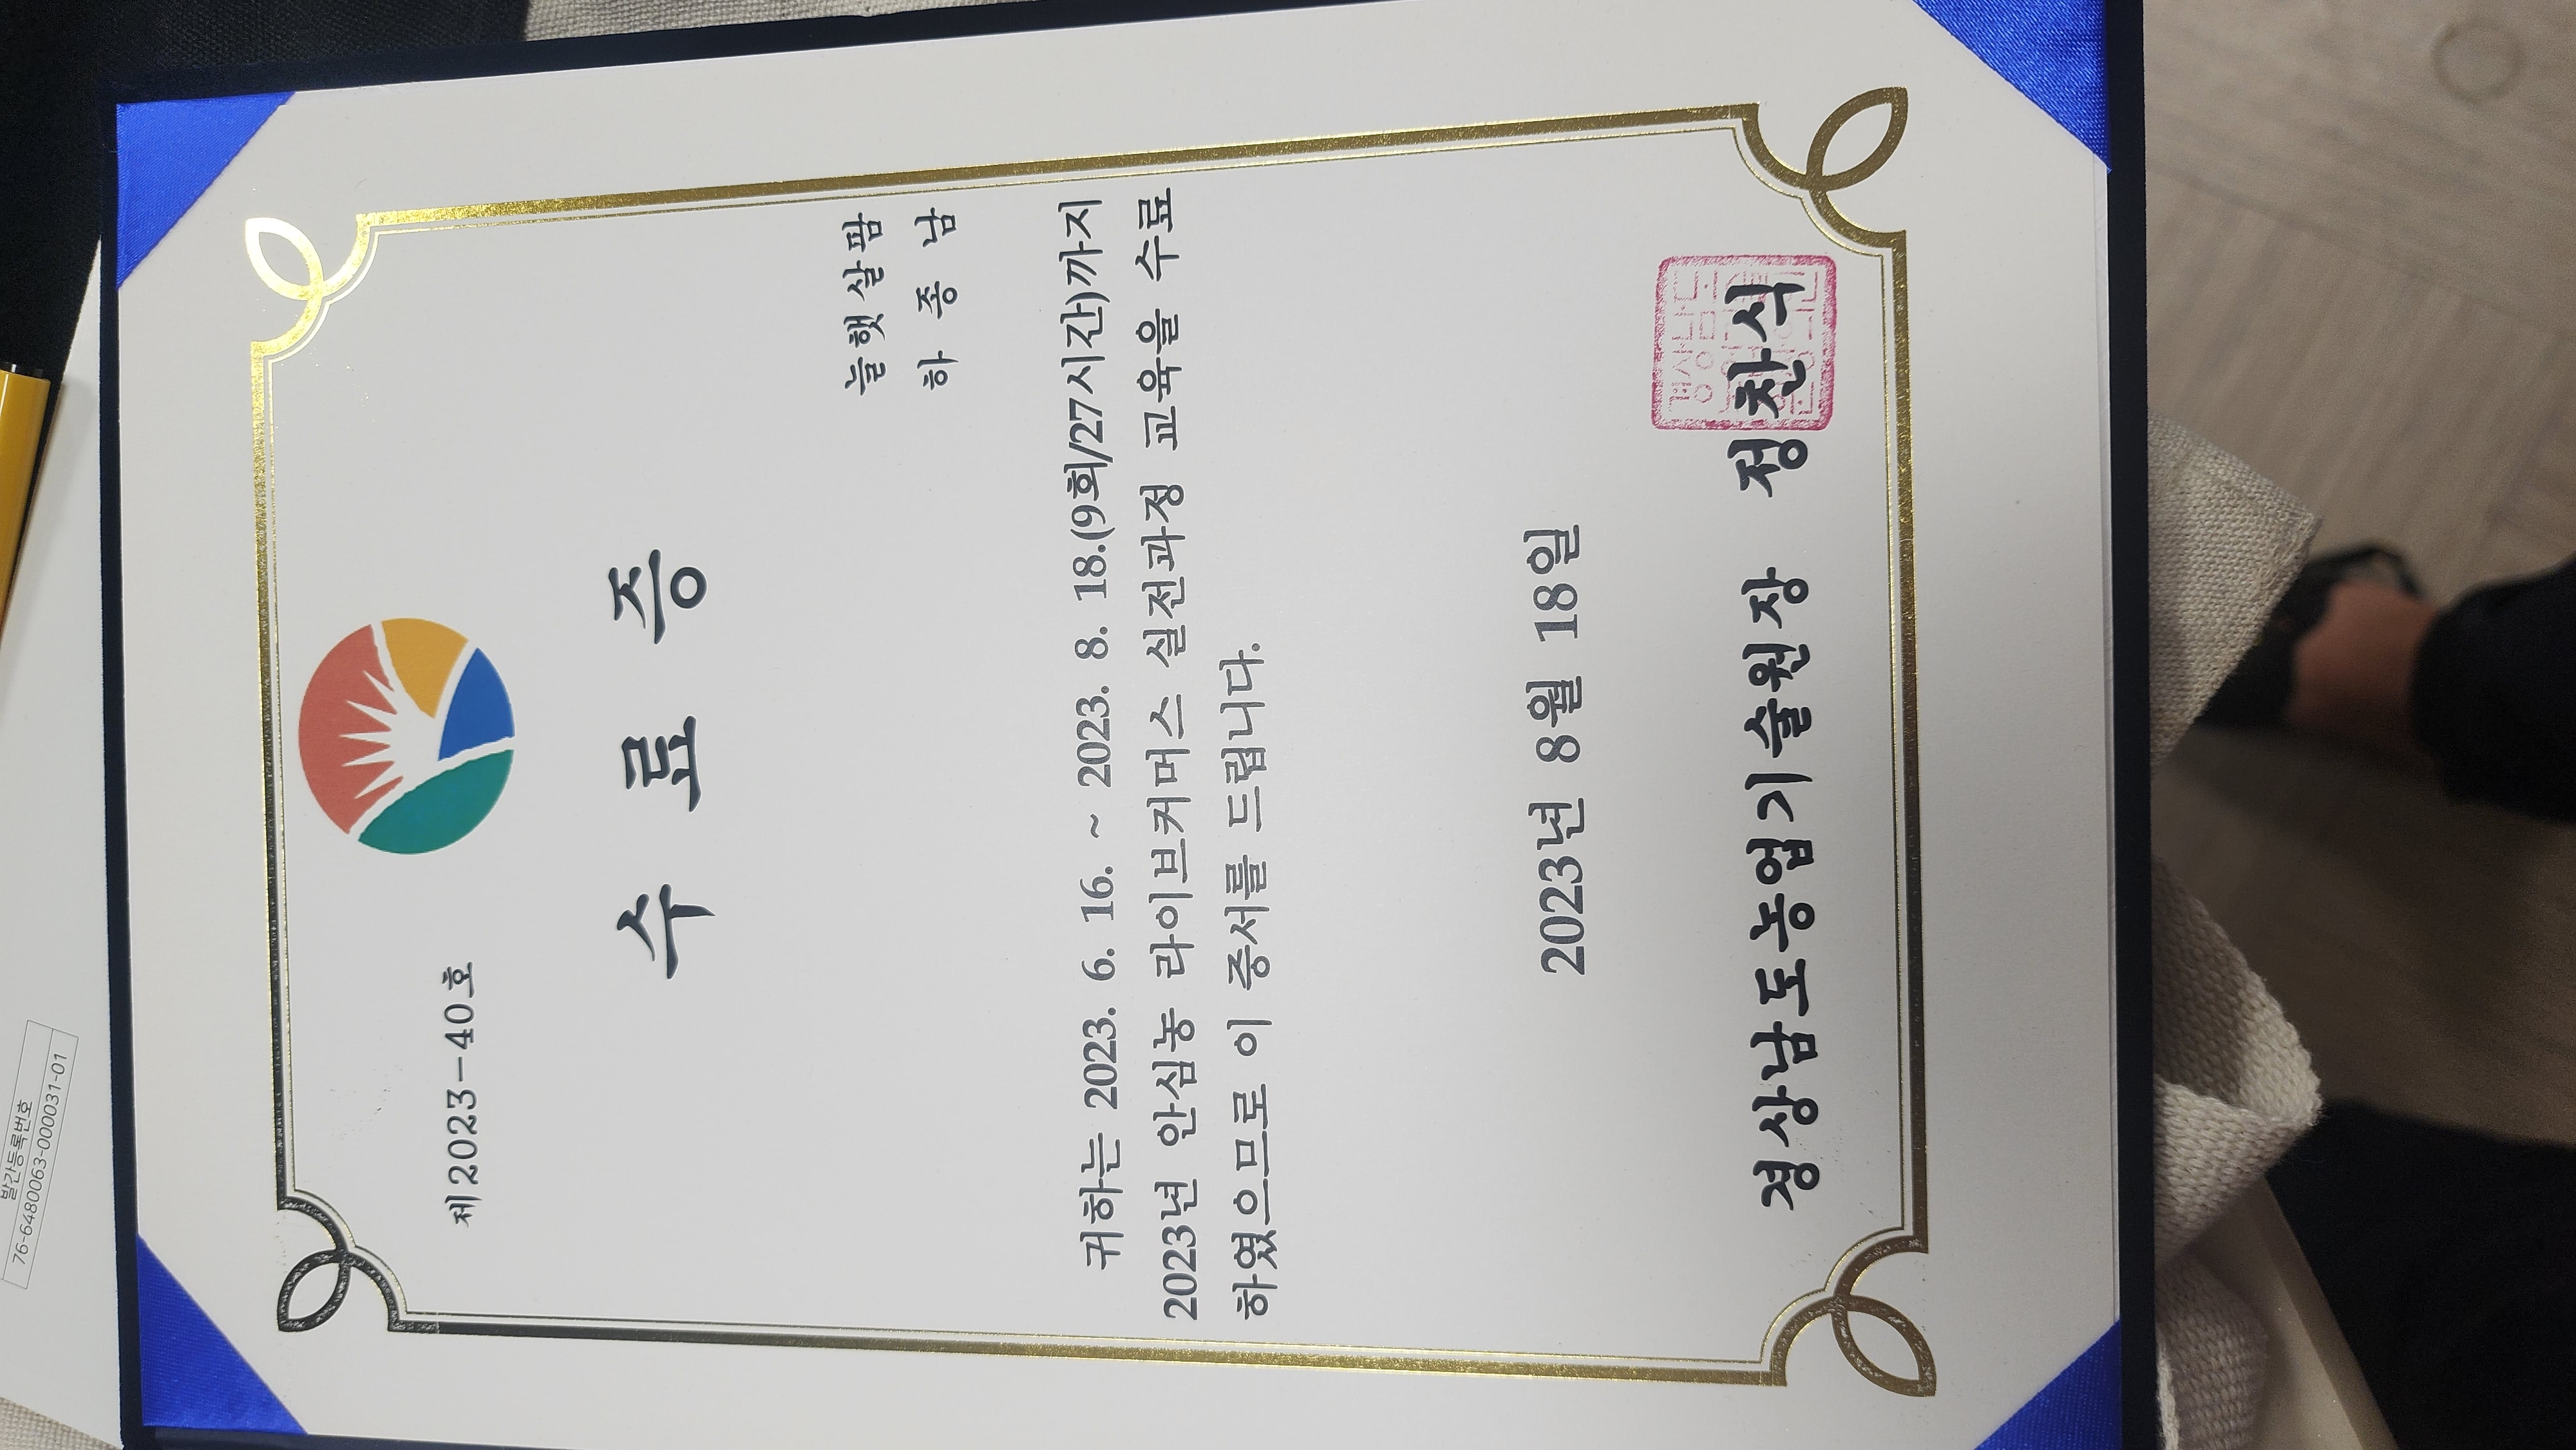 발간등록번호
76-6480063-000031-01
제2023-40호
수 료 증
늘햇살팜
하 종 남
귀하는 2023. 6. 16. ~ 2023. 8. 18.(9회/27시간)까지
2023년 안심농 라이브커머스 실전과정 교육을 수료
하였으므로 이 증서를 드립니다.
2023년 8월 18일
경상남도농업기술원장 정찬식